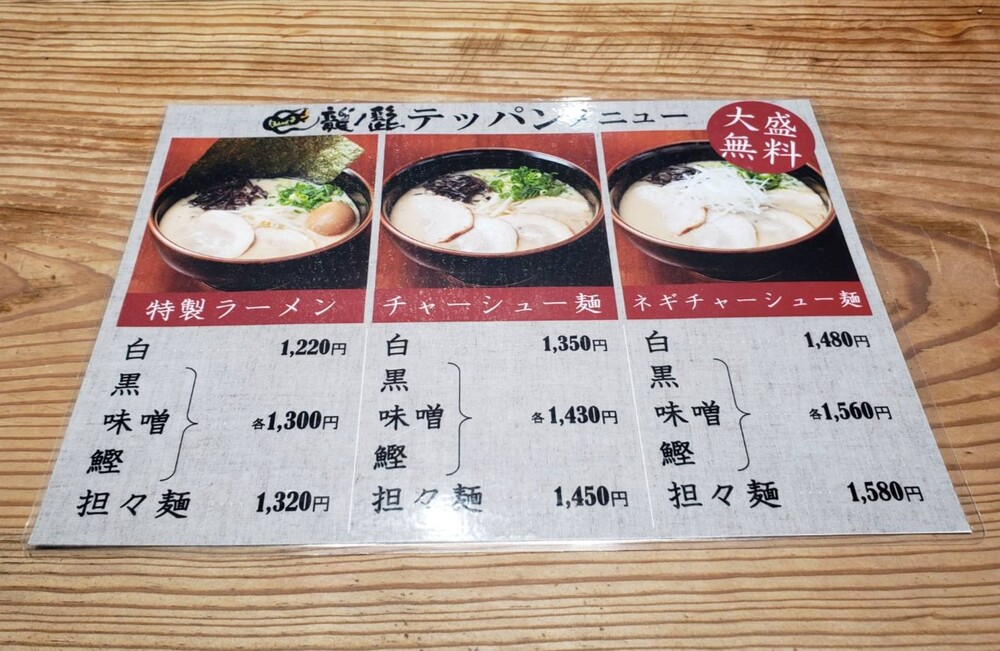 龍ノ髭 テッパンメニュー
大盛
無料
特製ラーメン
白 1,220円
黒
味噌 各1,300円
鰹
担々麺 1,320円
チャーシュー麺
白 1,350円
黒
味噌 各1,430円
鰹
担々麺 1,450円
ネギチャーシュー麺
白 1,480円
黒
味噌 各1,560円
鰹
担々麺 1,580円